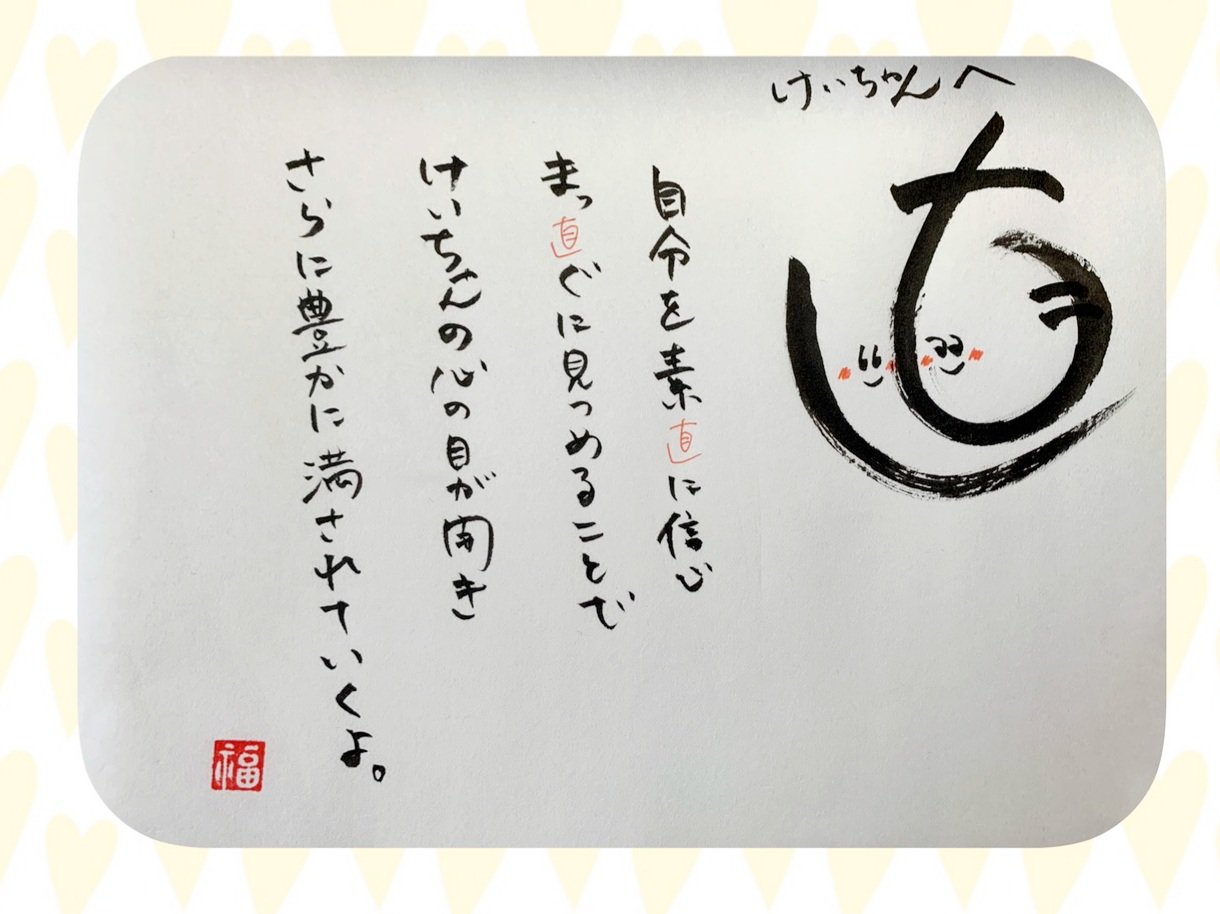 けいちゃんへ
直
自分を素直に信じ
まっ直ぐに見つめることで
けいちゃんの心の目が開き
さらに豊かに満されていくよ。
福